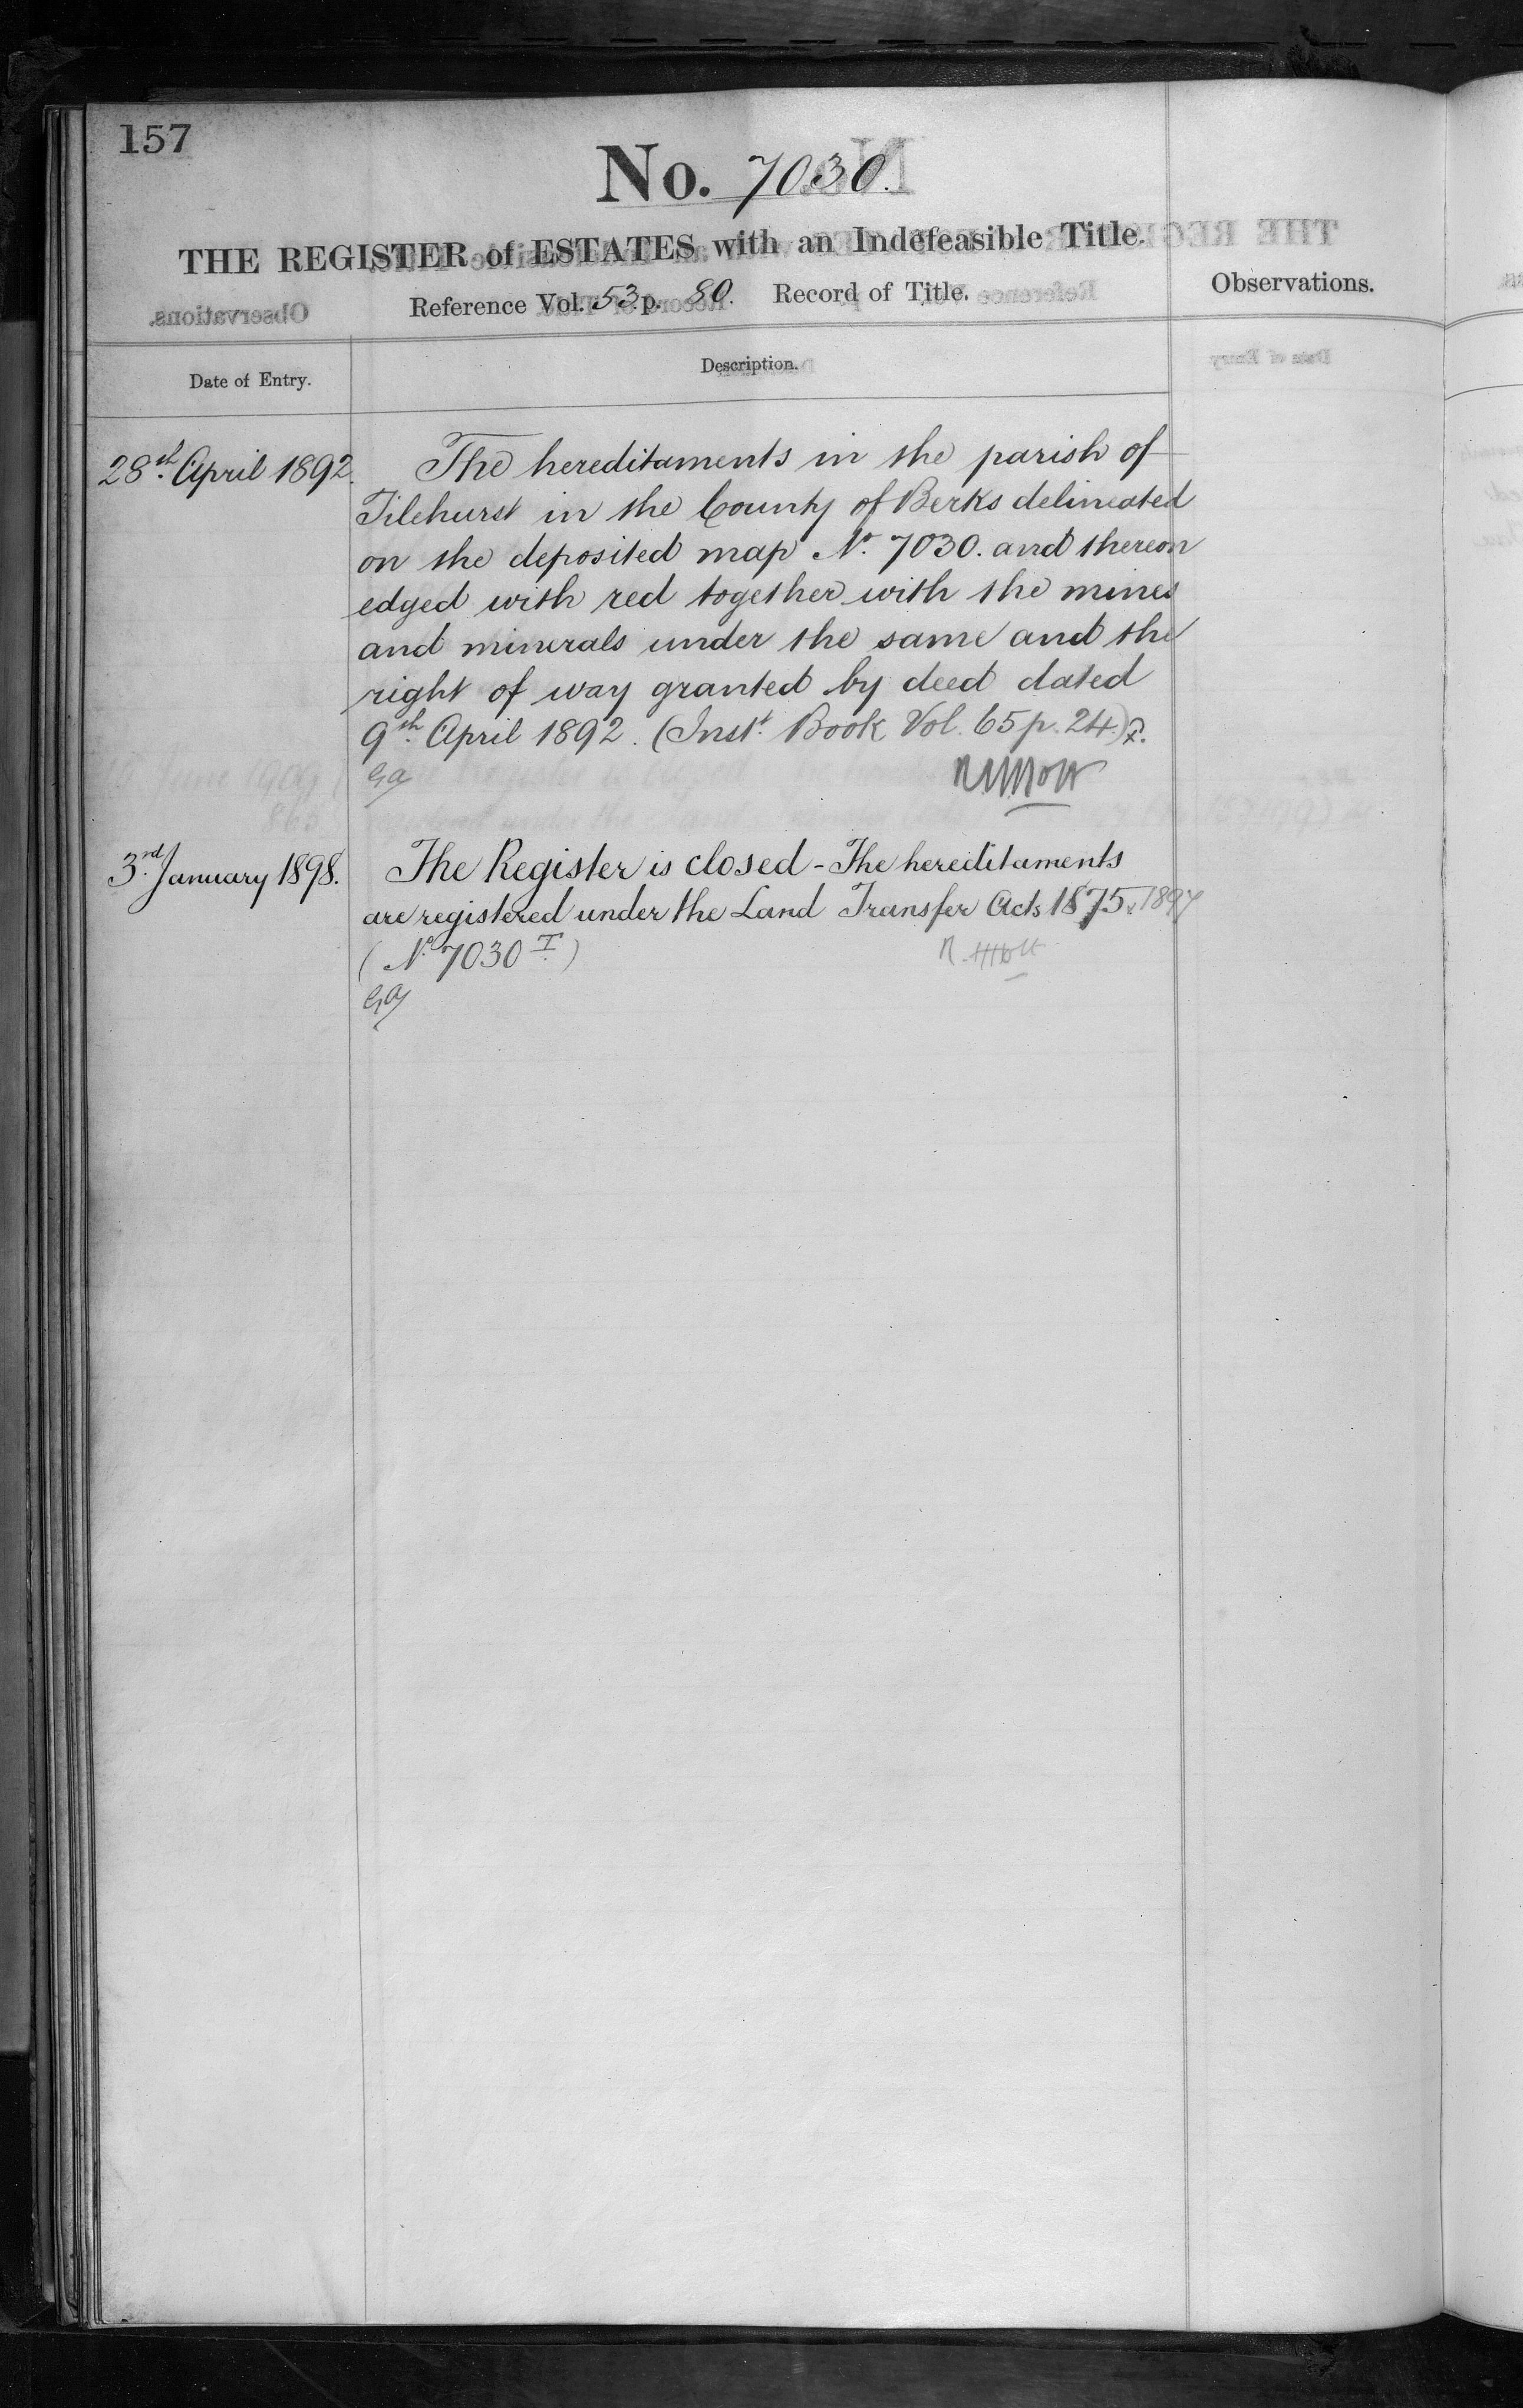 157
No. 7030.
THE REGISTER of ESTATES with an Indefeasible Title.
Reference Vol. 53 p. 80. Record of Title.
Observations.
Date of Entry.
Description.
28th April 1892. The hereditaments in the parish of
Tilehurst in the County of Berks delineated
on the deposited map No. 7030. and thereon
edged with red together with the mines
and minerals under the same and the
right of way granted by deed dated
9th April 1892. (Inst. Book Vol. 65 p. 24.)
3rd January 1898. The Register is closed - The hereditaments
are registered under the Land Transfer Acts 1875 & 1897
(No. 7030 I.)